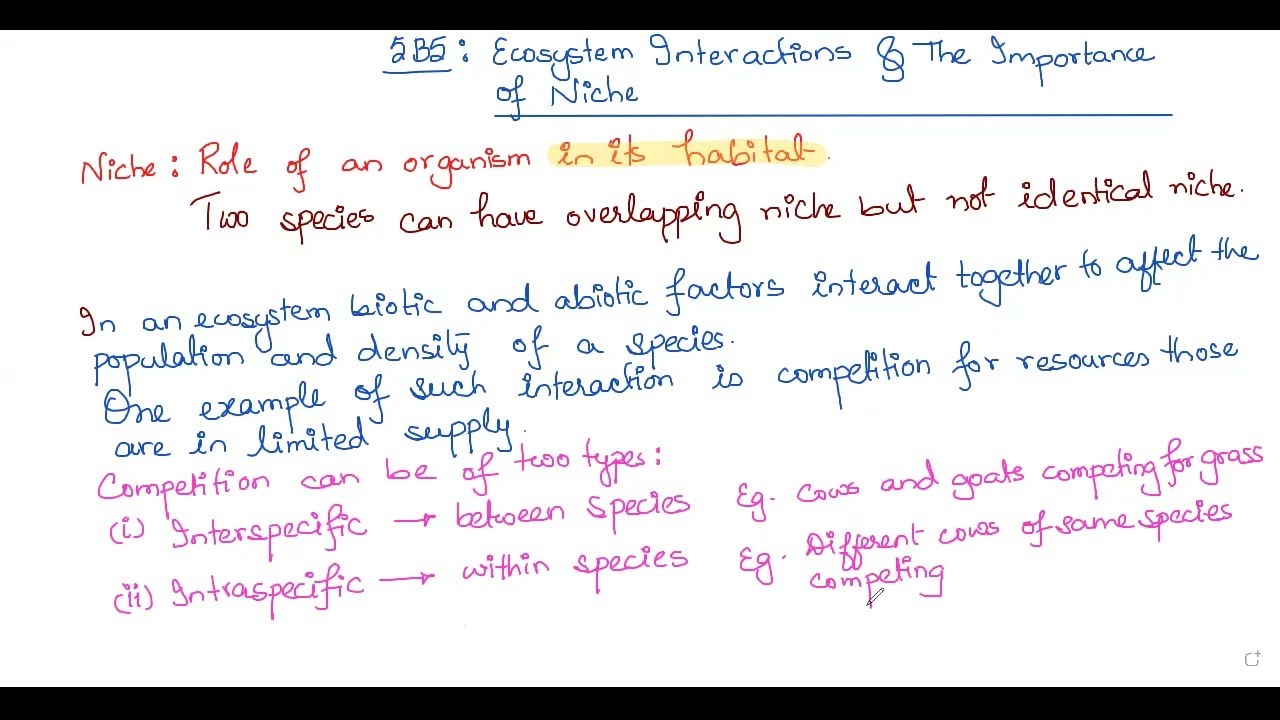 5B5: Ecosystem Interactions & The Importance
of Niche
Niche: Role of an organism in its habitat.
Two species can have overlapping niche but not identical niche.
In an ecosystem biotic and abiotic factors interact together to affect the
population and density of a species.
One example of such interaction is competition for resources those
are in limited supply.
Competition can be of two types:
(i) Interspecific → between species Eg. Cows and goats competing for grass
(ii) Intraspecific → within species Eg. Different cows of same species
competing